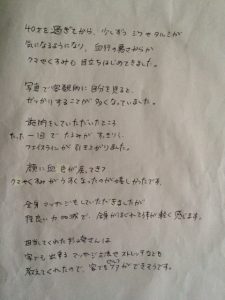 40才を過ぎてから、少しずつシワやタルミが
気になるようになり、血行の悪さからか
クマやくすみも目立ちはじめてきました。
写真で客観的に自分を見ると、
ガッカリすることが多くなっていました。
施術をしていただいたところ
たった一回でたるみがすっきりし、
フェイスラインが引き上がりました。
顔に血色が戻ってきて
クマやくすみがうすくなったのが嬉しかったです。
全身マッサージもしていただきましたが
程良い力加減で、全身がほぐれて身が軽く感じます。
担当してくれた さんは
家でも出来るマッサージ方法やストレッチなども
教えてくれたので、家でもケアができそうです。